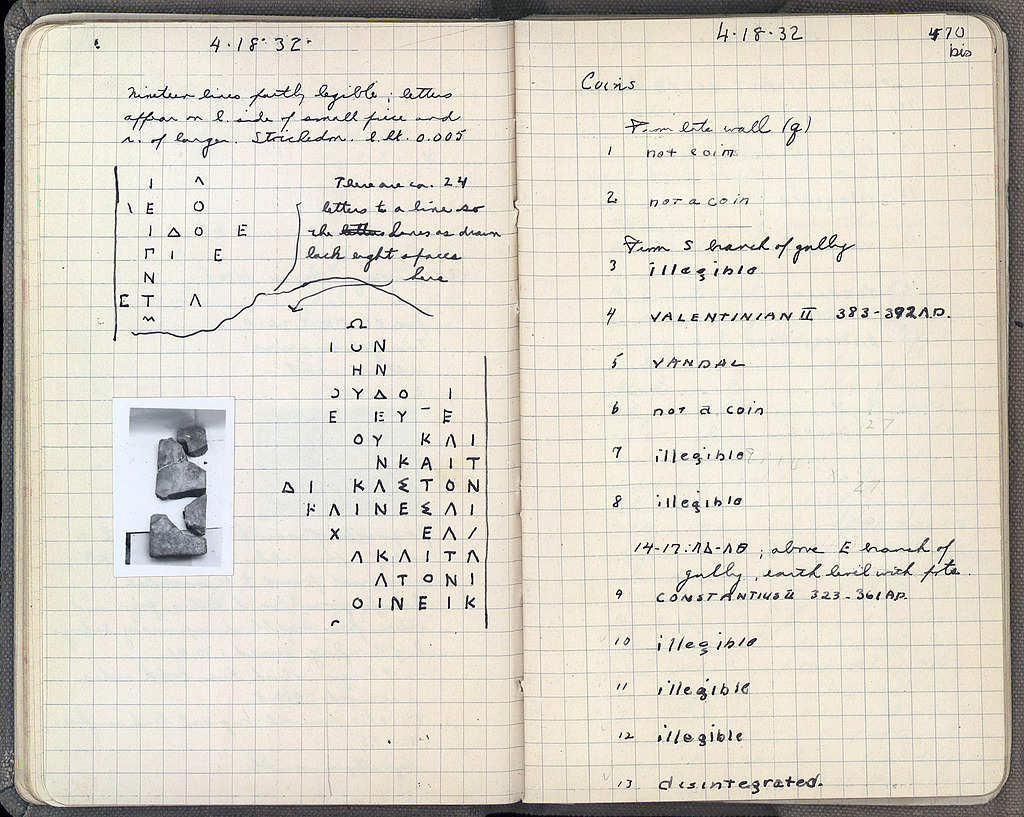 4·18·32·
Nineteen lines partly legible; letters
appear on l. side of small piece and
r. of larger. Stoichedon. l. ht. 0.005
There are ca. 24
letters to a line so
the lines as drawn
lack eight spaces
here
Ι Λ
\ Ε Ο
Ι Δ Ο Ε
Γ Ι Ε
Ν
Ε Τ Λ
Ω
Ι Ν
Η Ν
Υ Δ Ο Ι
Ε Ε Υ Ε
Ο Υ Κ Λ Ι
Ν Κ Α Ι Τ
Δ Ι Κ Λ Σ Τ Ο Ν
Λ Ι Ν Ε Σ Λ Ι
Χ Ε Λ /
Λ Κ Λ Ι Τ Λ
Λ Τ Ο Ν Ι
Ο Ι Ν Ε Ι Κ
4·18·32
470
bis
Coins
From late wall (q)
1 not coin
2 not a coin
From S branch of gully
3 illegible
4 VALENTINIAN II 383-392 A.D.
5 VANDAL
6 not a coin
27
7 illegible
8 illegible
14-17:ΛΔ-ΛΘ ; above E branch of
gully, earth level with
9 CONSTANTIUS II 323-361 AD.
10 illegible
11 illegible
12 illegible
13 disintegrated.